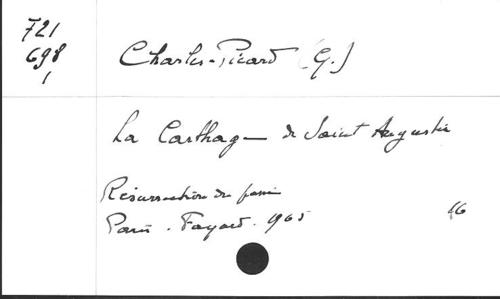 721
698
1
Charles-Picard (G.)
La Carthage de Saint Augustin
Résurrection du passé
Paris. Fayard. 1965
16